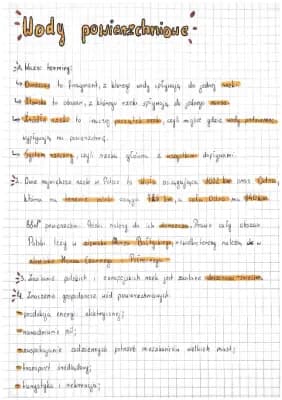 Wody powierzchniowe
1. Ważne terminy:
↳ Dorzecze to fragment, z którego wody spływają do jednej rzeki.
↳ Zlewisko to obszar, z którego rzeki spływają do jednego morza.
↳ Źródło rzeki to inaczej początek rzeki, czyli miejsce gdzie wody podziemne
wypływają na powierzchnię.
↳ System rzeczny, czyli rzeka główna z wszystkimi dopływami.
2. Dwie największe rzeki w Polsce to Wisła osiągająca 1022 km oraz Odra,
która na terenie polski osiąga 742 km, a cała Odra ma 840 km
powierzchni. Polski należą do ich dorzecza. Prawie cały obszar
Polski leży w zlewisku Morza Bałtyckiego, niewielkie tereny należą do
zlewiska Morza Czarnego Północnego
3. Zasilanie polskich i europejskich rzek jest zasilanie deszczowo-śnieżne.
4. Znaczenie gospodarcze wód powierzchniowych
produkcja energii elektrycznej;
nawadnianie pól;
zaspokajanie codziennych potrzeb mieszkańców wielkich miast;
transport śródlądowy;
turystyka i rekreacja;